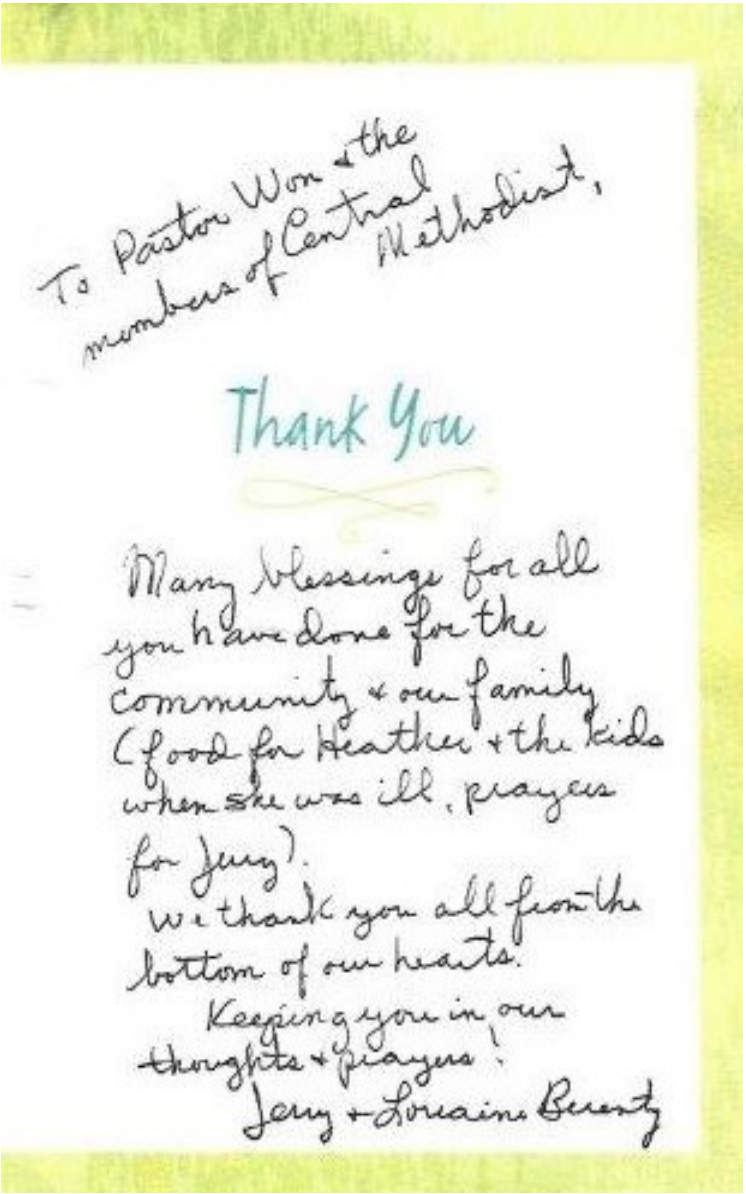 To Pastor Won & the
members of Central
Methodist,
Thank You
Many blessings for all
you have done for the
community & our family
(food for Heather & the kids
when she was ill, prayers
for Jerry).
We thank you all from the
bottom of our hearts.
Keeping you in our
thoughts & prayers!
Jerry & Lorraine